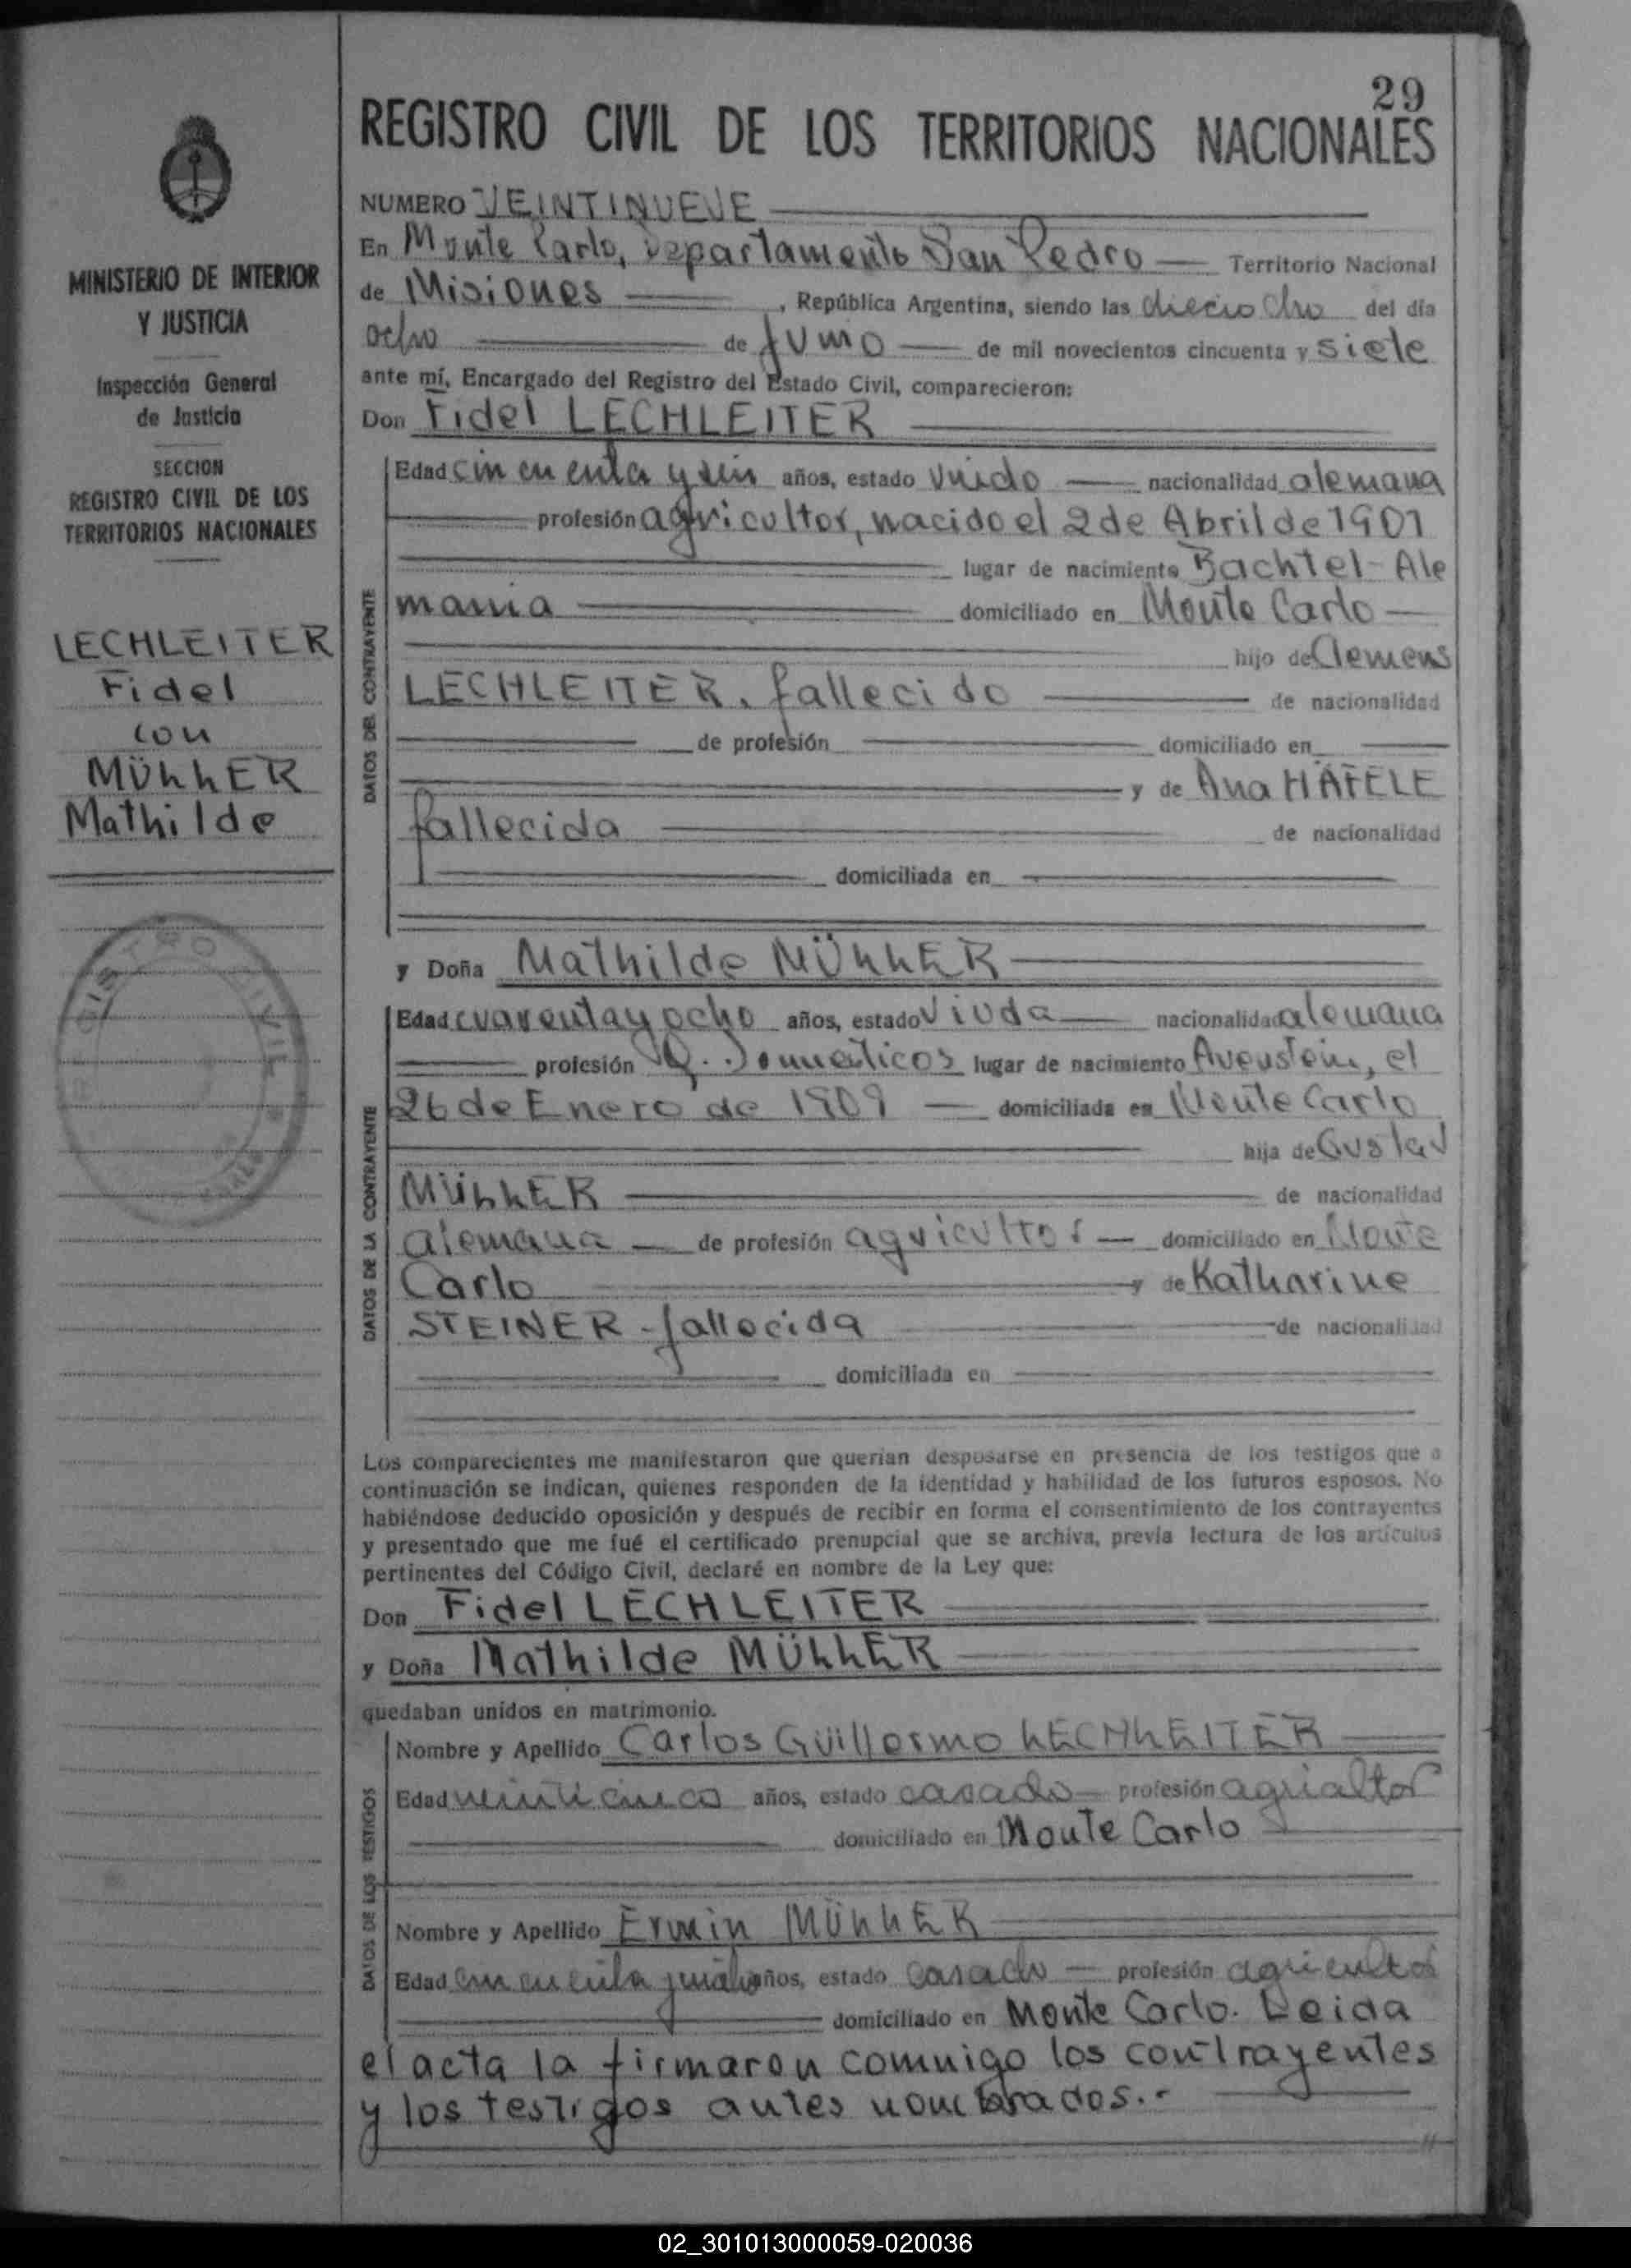 29
REGISTRO CIVIL DE LOS TERRITORIOS NACIONALES
MINISTERIO DE INTERIOR
Y JUSTICIA
Inspección General
de Justicia
SECCION
REGISTRO CIVIL DE LOS
TERRITORIOS NACIONALES
LECHLEITER
Fidel
con
MÜLLER
Mathilde
NUMERO VEINTINUEVE
En Monte Carlo, Departamento San Pedro Territorio Nacional
de Misiones, República Argentina, siendo las dieciocho del día
ocho de Junio de mil novecientos cincuenta y siete
ante mí, Encargado del Registro del Estado Civil, comparecieron:
Don Fidel LECHLEITER
DATOS DEL CONTRAYENTE
Edad cincuenta y seis años, estado viudo nacionalidad alemana
profesión agricultor, nacido el 2 de Abril de 1901
lugar de nacimiento Bachtel-Ale
mania domiciliado en Monte Carlo
hijo de Clemens
LECHLEITER, fallecido de nacionalidad
de profesión domiciliado en
y de Ana HÄFELE
fallecida de nacionalidad
domiciliada en
y Doña Mathilde MÜLLER
DATOS DE LA CONTRAYENTE
Edad cuarenta y ocho años, estado viuda nacionalidad alemana
profesión Q. Domésticos lugar de nacimiento el
26 de Enero de 1909 domiciliada en Monte Carlo
hija de Gustav
MÜLLER de nacionalidad
alemana de profesión agricultor domiciliado en Monte
Carlo y de Katharine
STEINER - fallecida de nacionalidad
domiciliada en
Los comparecientes me manifestaron que querían desposarse en presencia de los testigos que a
continuación se indican, quienes responden de la identidad y habilidad de los futuros esposos. No
habiéndose deducido oposición y después de recibir en forma el consentimiento de los contrayentes
y presentado que me fué el certificado prenupcial que se archiva, previa lectura de los artículos
pertinentes del Código Civil, declaré en nombre de la Ley que:
Don Fidel LECHLEITER
y Doña Mathilde MÜLLER
quedaban unidos en matrimonio.
DATOS DE LOS TESTIGOS
Nombre y Apellido Carlos Guillermo LECHLEITER
Edad veinticinco años, estado casado profesión agricultor
domiciliado en Monte Carlo
Nombre y Apellido Erwin MÜLLER
Edad cincuenta años, estado casado profesión agricultor
domiciliado en Monte Carlo. Leida
el acta la firmaron comnigo los contrayentes
y los testigos antes nombrados.-
02_301013000059-020036